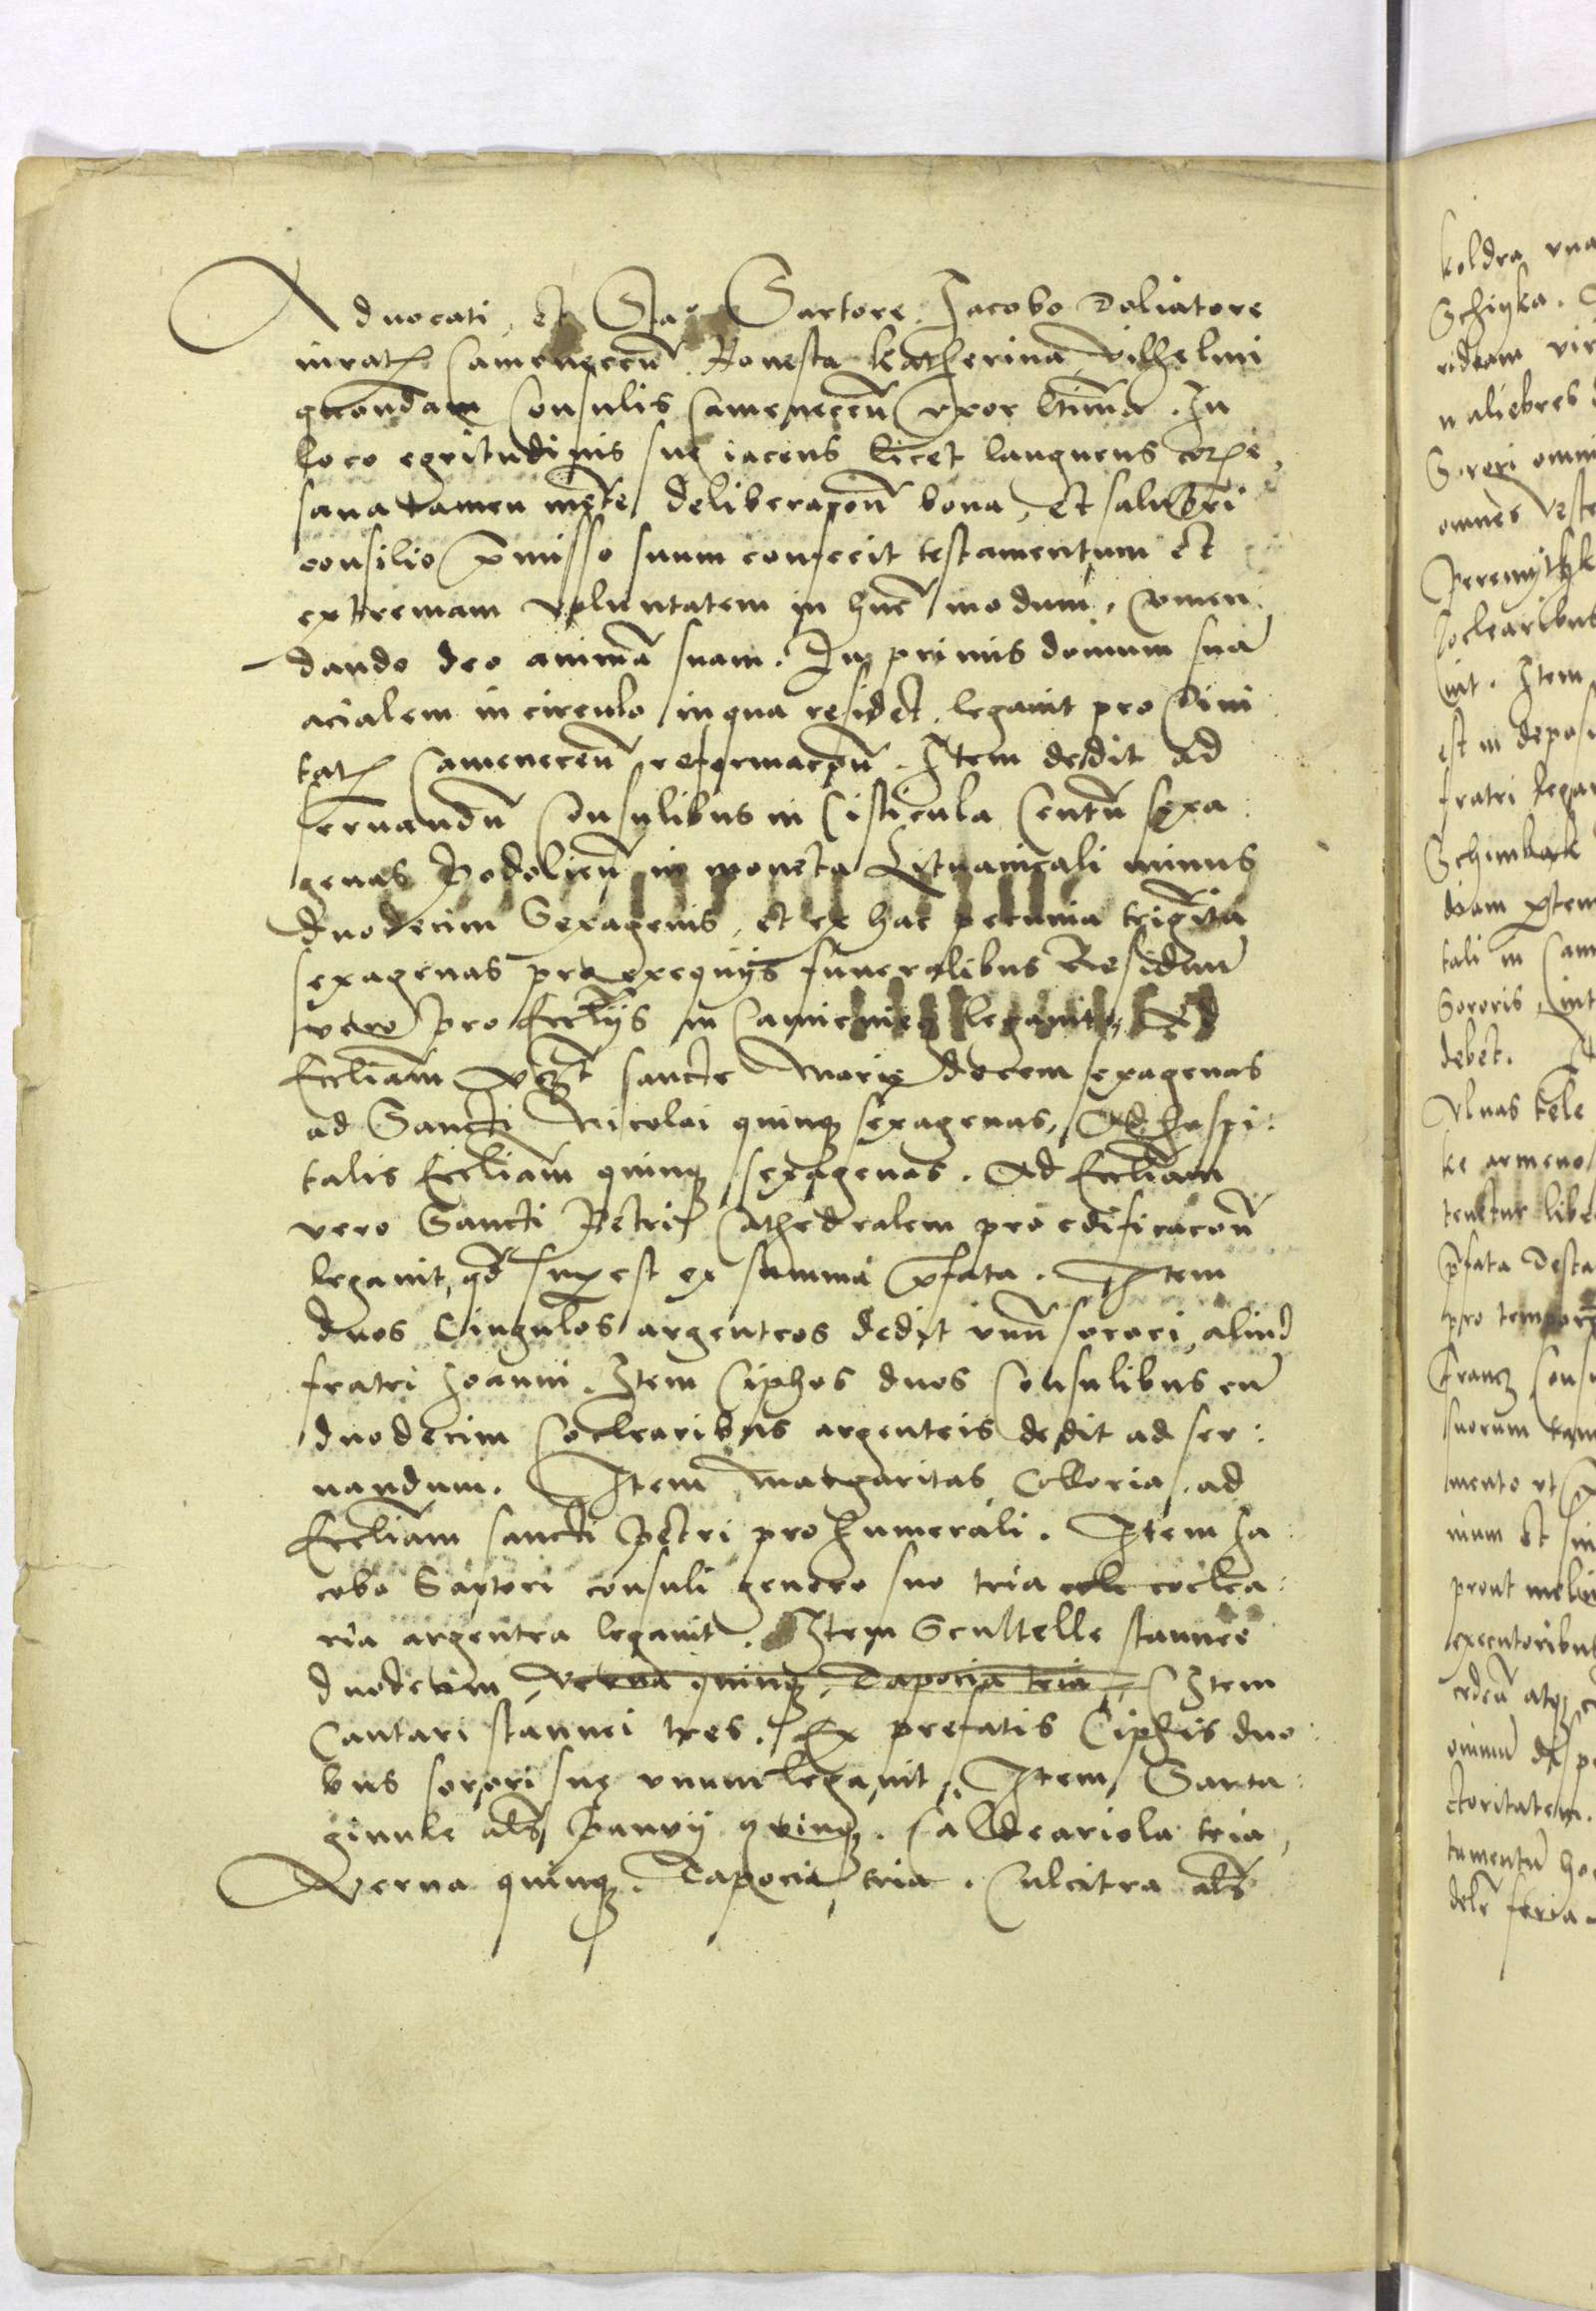 Aduocati, et Sta Sartore. Jacobo Doliatore
iuratꝫ Camenecen̄. Honesta Katherina Vilhelmi
quondam Consulis Camenecen̄ vxor ltima. In
loco egritudinis sue iacens licet languens corꝑe,
sana tamen mēte deliberacon̄ bona, et salubri
consilio p̄misso suum confecit testamentum et
extremam voluntatem in hūc modum, comen
dando deo animā suam. In primis domum suā
acialem in circulo in qua residet, legauit pro Ciui
tatꝫ Camenecen̄ reformacon̄. Item dedit ad
seruandū Consulibus in Cisticula Centū sexa:
genas Podolien̄ in moneta Lituanicali minus
duodecim Sexagenis, et ex hac pecunia trigīta
sexagenas pro exequijs funeralibus Residuū
vero pro Ecclijs in Camieniecz legauit. Ad
Eccliam vꝫt sancte Marię decem sexagenas
ad Sancti Nicolai quinqꝫ sexagenas, Ad hospi:
talis Eccliam quinqꝫ sexagenas. Ad Eccliam
vero Sancti Petri Cathedralem pro edificacon̄
legauit, qd̄ suꝑest ex summa p̄fata. Item
duos Cingulos argenteos dedit vnū sorori, aliud
fratri Joanni. Item Ciphos duos Consulibus cū
duodecim Coclearibus argenteis dedit ad ser:
uandum. Item margaritas Colloria ad
Eccliam sancti Petri pro humerali. Item Ja
cobo Sartori consuli genero suo tria cole coclea:
ria argentea legauit. Item Scultelle stannee
duodecim, Verna quinqꝫ, Tapocia tria, Item
Cantari stannei tres. Ex prefatis Ciphis duo
bus sorori sue vnum legauit. Item Sarta:
ginule als̄ Panvÿ quinqꝫ. Caldeariola tria,
Verna quinqꝫ. Tapocia tria. Culcitra als̄
koldra vna
Schiyka.
rideam vir
Sorori omn
omnes veste
Coclearibus
uit. Item
est in deposi
fratri legau
tali in Cam
Sororis, int
debet.
Vlnas tele
ke armeno
tenetur libe
p̄fata Testa
pro tempore
suorum tam
mento vt p̄
nium et sin
prout meliu
executoribus
ctoritatem.
tamentū hoc
feria